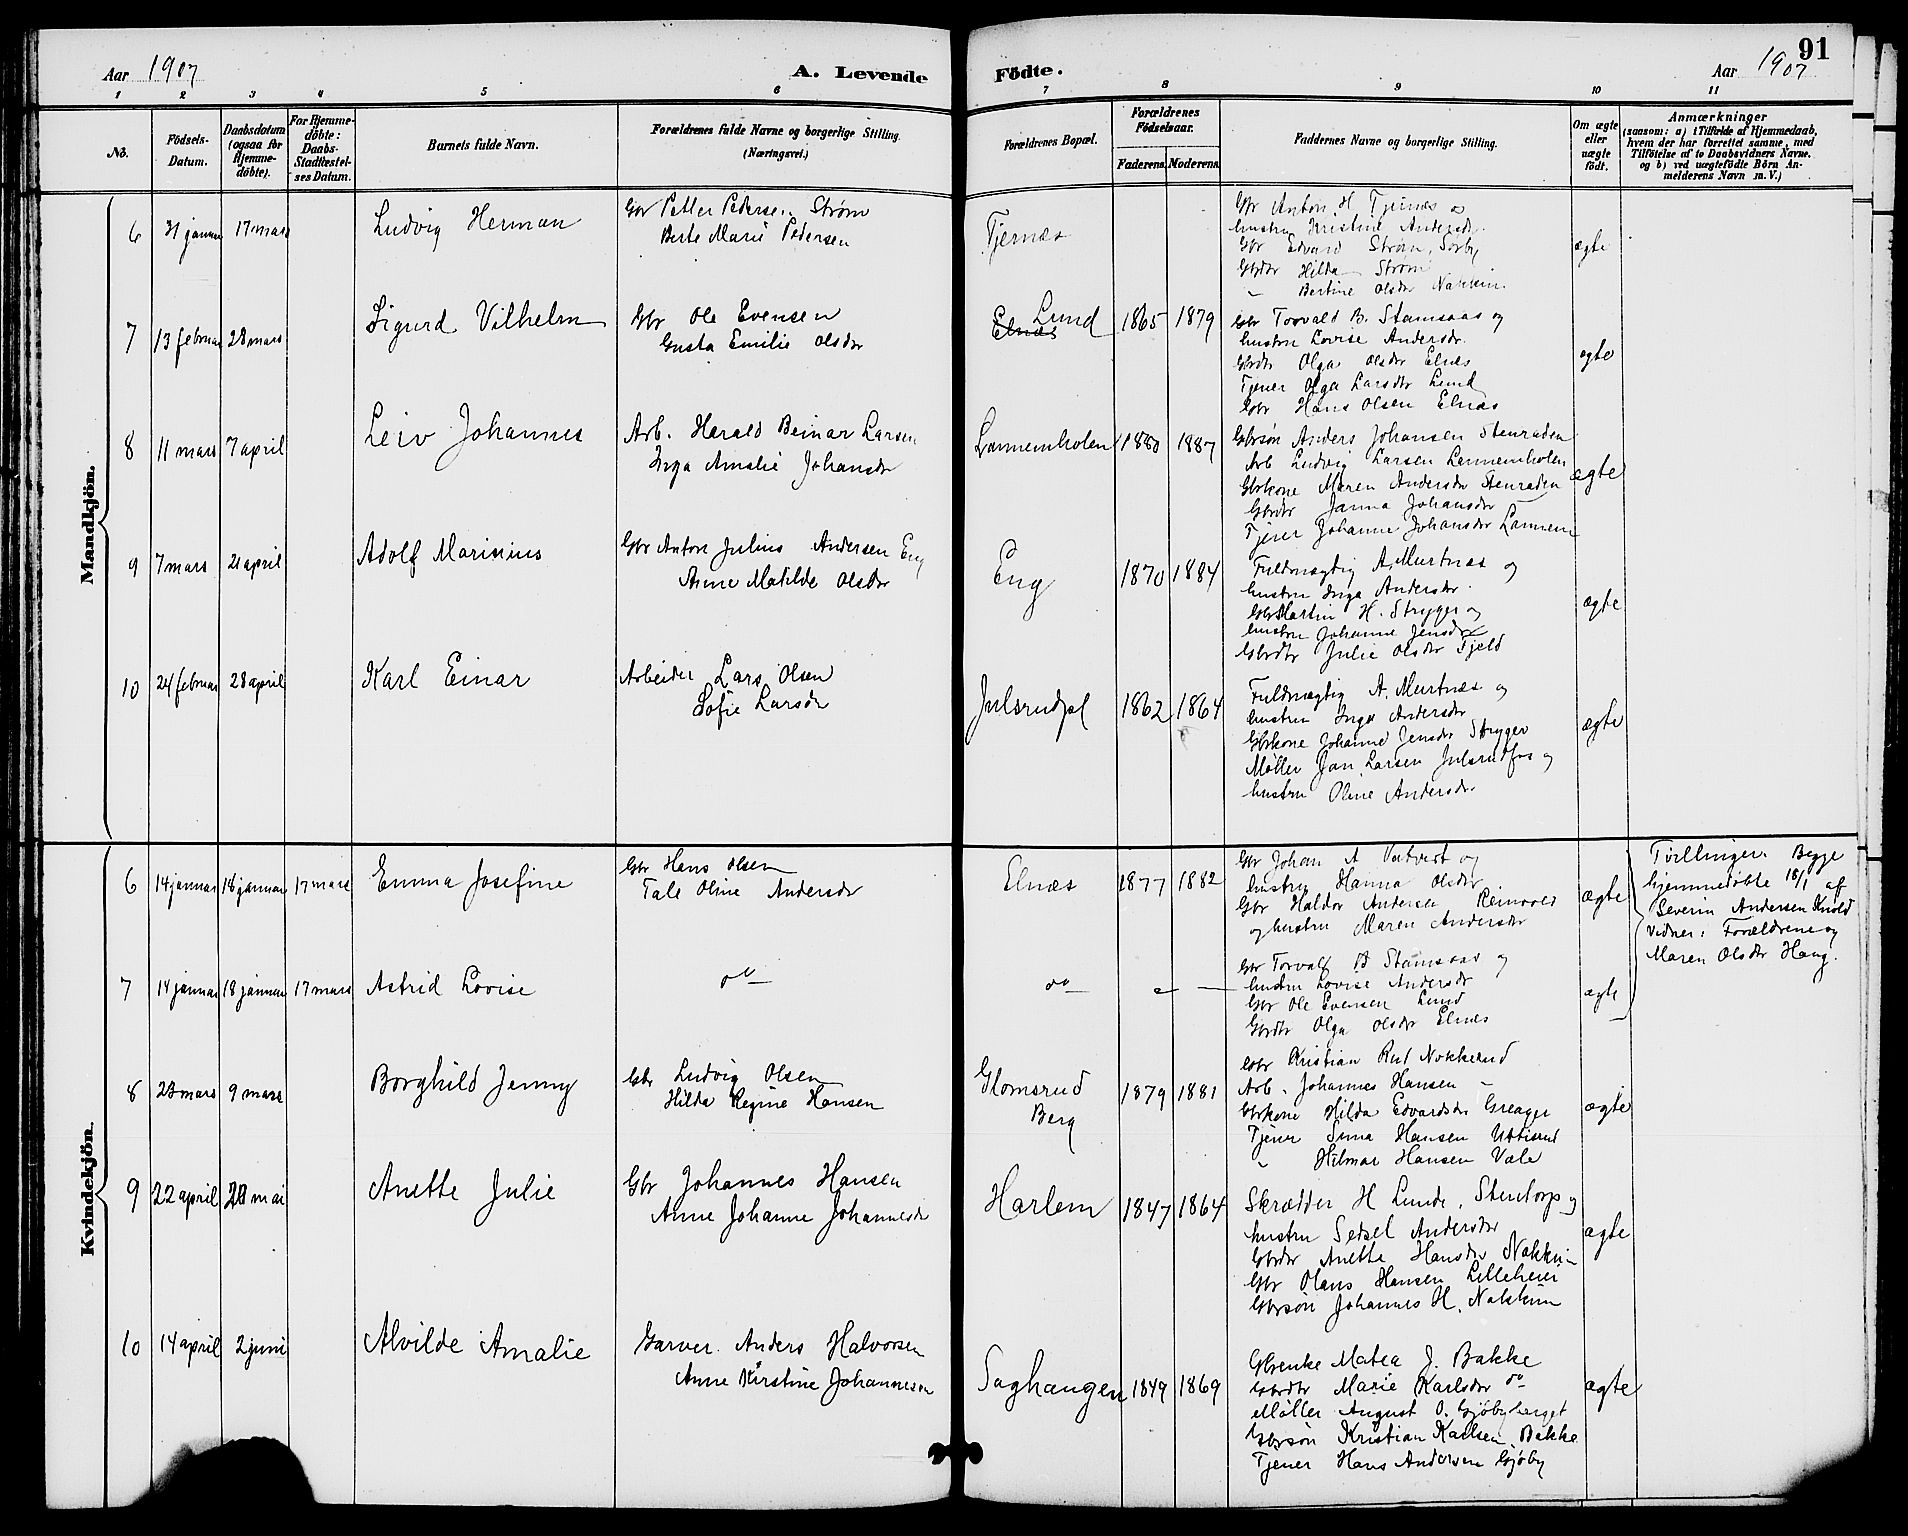 Aar 1907
A. Levende
Födte.
Aar 1907
91
1 2 3 4 5 6 7 8 9 10 11
No.
Födsels-
Datum.
Daabsdatum
(ogsaa för
Hjemme-
döbte).
For Hjemme-
döbte:
Daabs-
Stadfæstel-
ses Datum.
Barnets fulde Navn.
Forældrenes fulde Navne og borgerlige Stilling.
(Næringsvei.)
Forældrenes Bopæl.
Forældrenes
Födselsaar.
Faderens. Moderens.
Faddernes Navne og borgerlige Stilling.
Om ægte
eller
uægte
födt.
Anmærkninger
(saasom: a) i Tilfælde af Hjemmedaab,
hvem der har forrettet samme, med
Tilföielse af to Daabsvidners Navne.
og b) ved uægtefödte Börn An-
melderens Navn m. V.)
Mandkjön.
6 31 januar 17 mars Ludvig Herman
Gbr Petter Pedersen Strøm
Berte Marie Pedersen
Tjernæs
Gbr Anton H. Tjernæs og
hustru Kristine Andersdr.
Gbr Edvard Strøm, Sørby
Gbrdtr Hilda Strøm
" Bertine Olsdtr Nakkim
ægte
7 13 februar 28 mars Sigurd Vilhelm
Gbr Ole Evensen
Gusta Emilie Olsdtr
Elnæs Lund 1865 1879
Gbr Torvald B. Stamsaas og
hustru Lovise Andersdr.
Gbrdtr Olga Olsdtr Elnæs
Tjener Olga Larsdtr Lund
Gbr Hans Olsen Elnæs
ægte
8 11 mars 7 april Leiv Johannes
Arb. Harald Beinar Larsen
Inga Amalie Johansdr
Lannemholen 1880 1887
Gbrsøn Anders Johansen Stenraden
Arb Ludvig Larsen Lannemholen
Gbrkone Maren Andersdr Stenraden
Gbrdtr Janna Johansdtr
Tjener Johanne Johansdtr Lannem
ægte
9 7 mars 21 april Adolf Marinius
Gbr Anton Julius Andersen Eng
Anne Matilde Olsdtr
Eng 1870 1884
Fuldmægtig A. Murtnæs og
hustru Inga Andersdr.
Gbr Martin H. Stryger og
hustru Johanne Jensdtr
Gbrdtr Julie Olsdtr Fjeld
ægte
10 24 februar 28 april Karl Einar
Arbeider Lars Olsen
Sofie Larsdr
Julsrudpl 1862 1864
Fuldmægtig A. Murtnæs og
hustru Inga Andersdtr
Gbrkone Johanne Jensdr Stryger
Møller Jan Larsen Julsrudfos og
hustru Oline Andersdr
ægte
Kvindekjön.
6 14 januar 18 januar 17 mars Emma Josefine
Gbr Hans Olsen
Tale Oline Andersdr
Elnæs 1877 1882
Gbr Johan A og
hustru Hanna Olsdtr
Gbr Haldor Andersen
og hustru Maren Andersdtr
ægte
Tvillinger. Begge
hjemmedøbte 18/1 af
Severin Andersen Knold
Vidner: Forældrene og
Maren Olsdtr Haug.
7 14 januar 18 januar 17 mars Astrid Lovise
do
do
Gbr Torvald B Stamsaas og
hustru Lovise Andersdr
Gbr Ole Evensen Lund
Gbrdtr Olga Olsdtr Elnæs
ægte
8 23 mars 9 mars Borghild Jenny
Gbr Ludvig Olsen
Hilda Regine Hansen
Glomsrud
Berg 1879 1881
Gbr Kristian Nokkerud
Arb. Johannes Hansen "
Gbrkone Hilda Edvardsdr Greager
Tjener Hansen
" Hilmar Hansen Vale
ægte
9 22 april 20 mai Anette Julie
Gbr Johannes Hansen
Anne Johanne Johannesdr
Harlem 1847 1864
Skrædder H Lunde, Stentorp og
hustru Sedsel Andersdtr
Gbrdtr Anette Hansdtr Nakkim
Gbr Olaus Hansen Lilleheier
Gbrsøn Johannes H. Nakkim
ægte
10 14 april 2 juni Alvilde Amalie
Garver Anders Halvorsen
Anne Kirstine Johannesen
Saghaugen 1849 1869
Gbrenke Matea J. Bakke
Gbrdtr Marie Karlsdtr do
Møller August O. Gjøbyberget
Gbrsøn Kristian Karlsen Bakke
Tjener Hans Andersen Gjøby
ægte